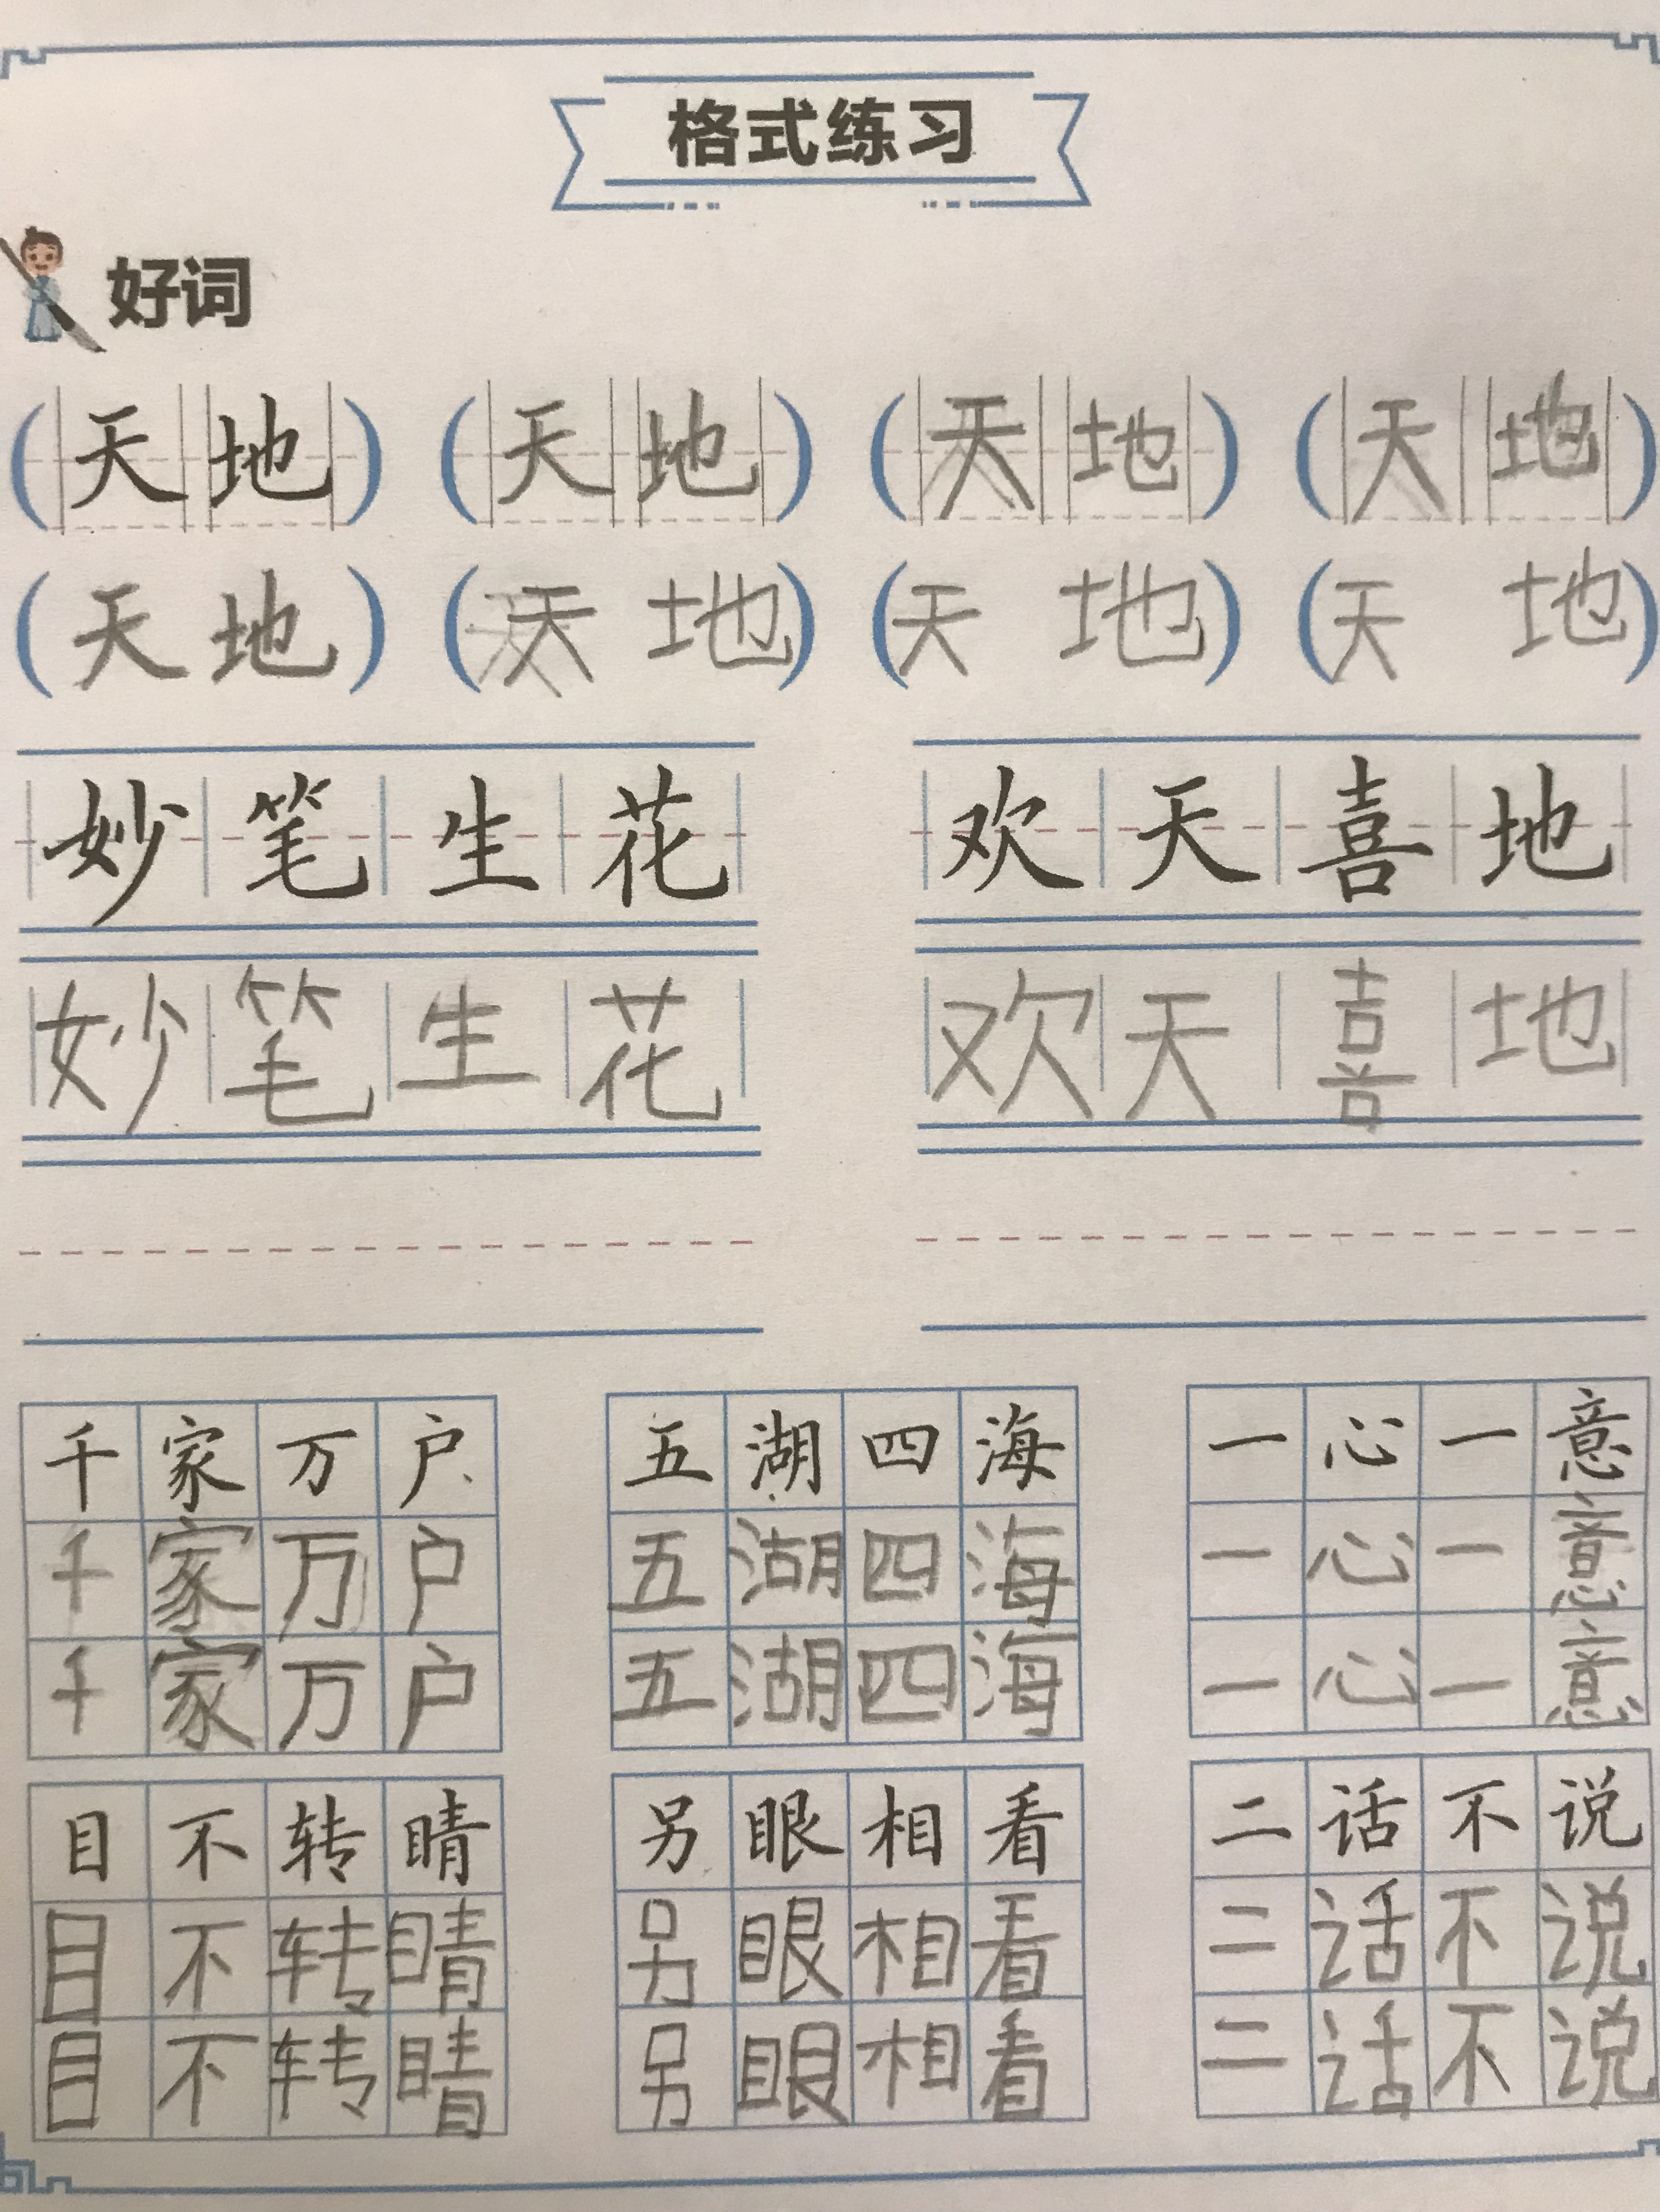 格式练习
好词
(天地) (天地) (天地) (天地)
(天地) (天地) (天地) (天地)
妙笔生花 欢天喜地
妙笔生花 欢天喜地
千家万户 五湖四海 一心一意
千家万户 五湖四海 一心一意
千家万户 五湖四海 一心一意
目不转睛 另眼相看 二话不说
目不转睛 另眼相看 二话不说
目不转睛 另眼相看 二话不说